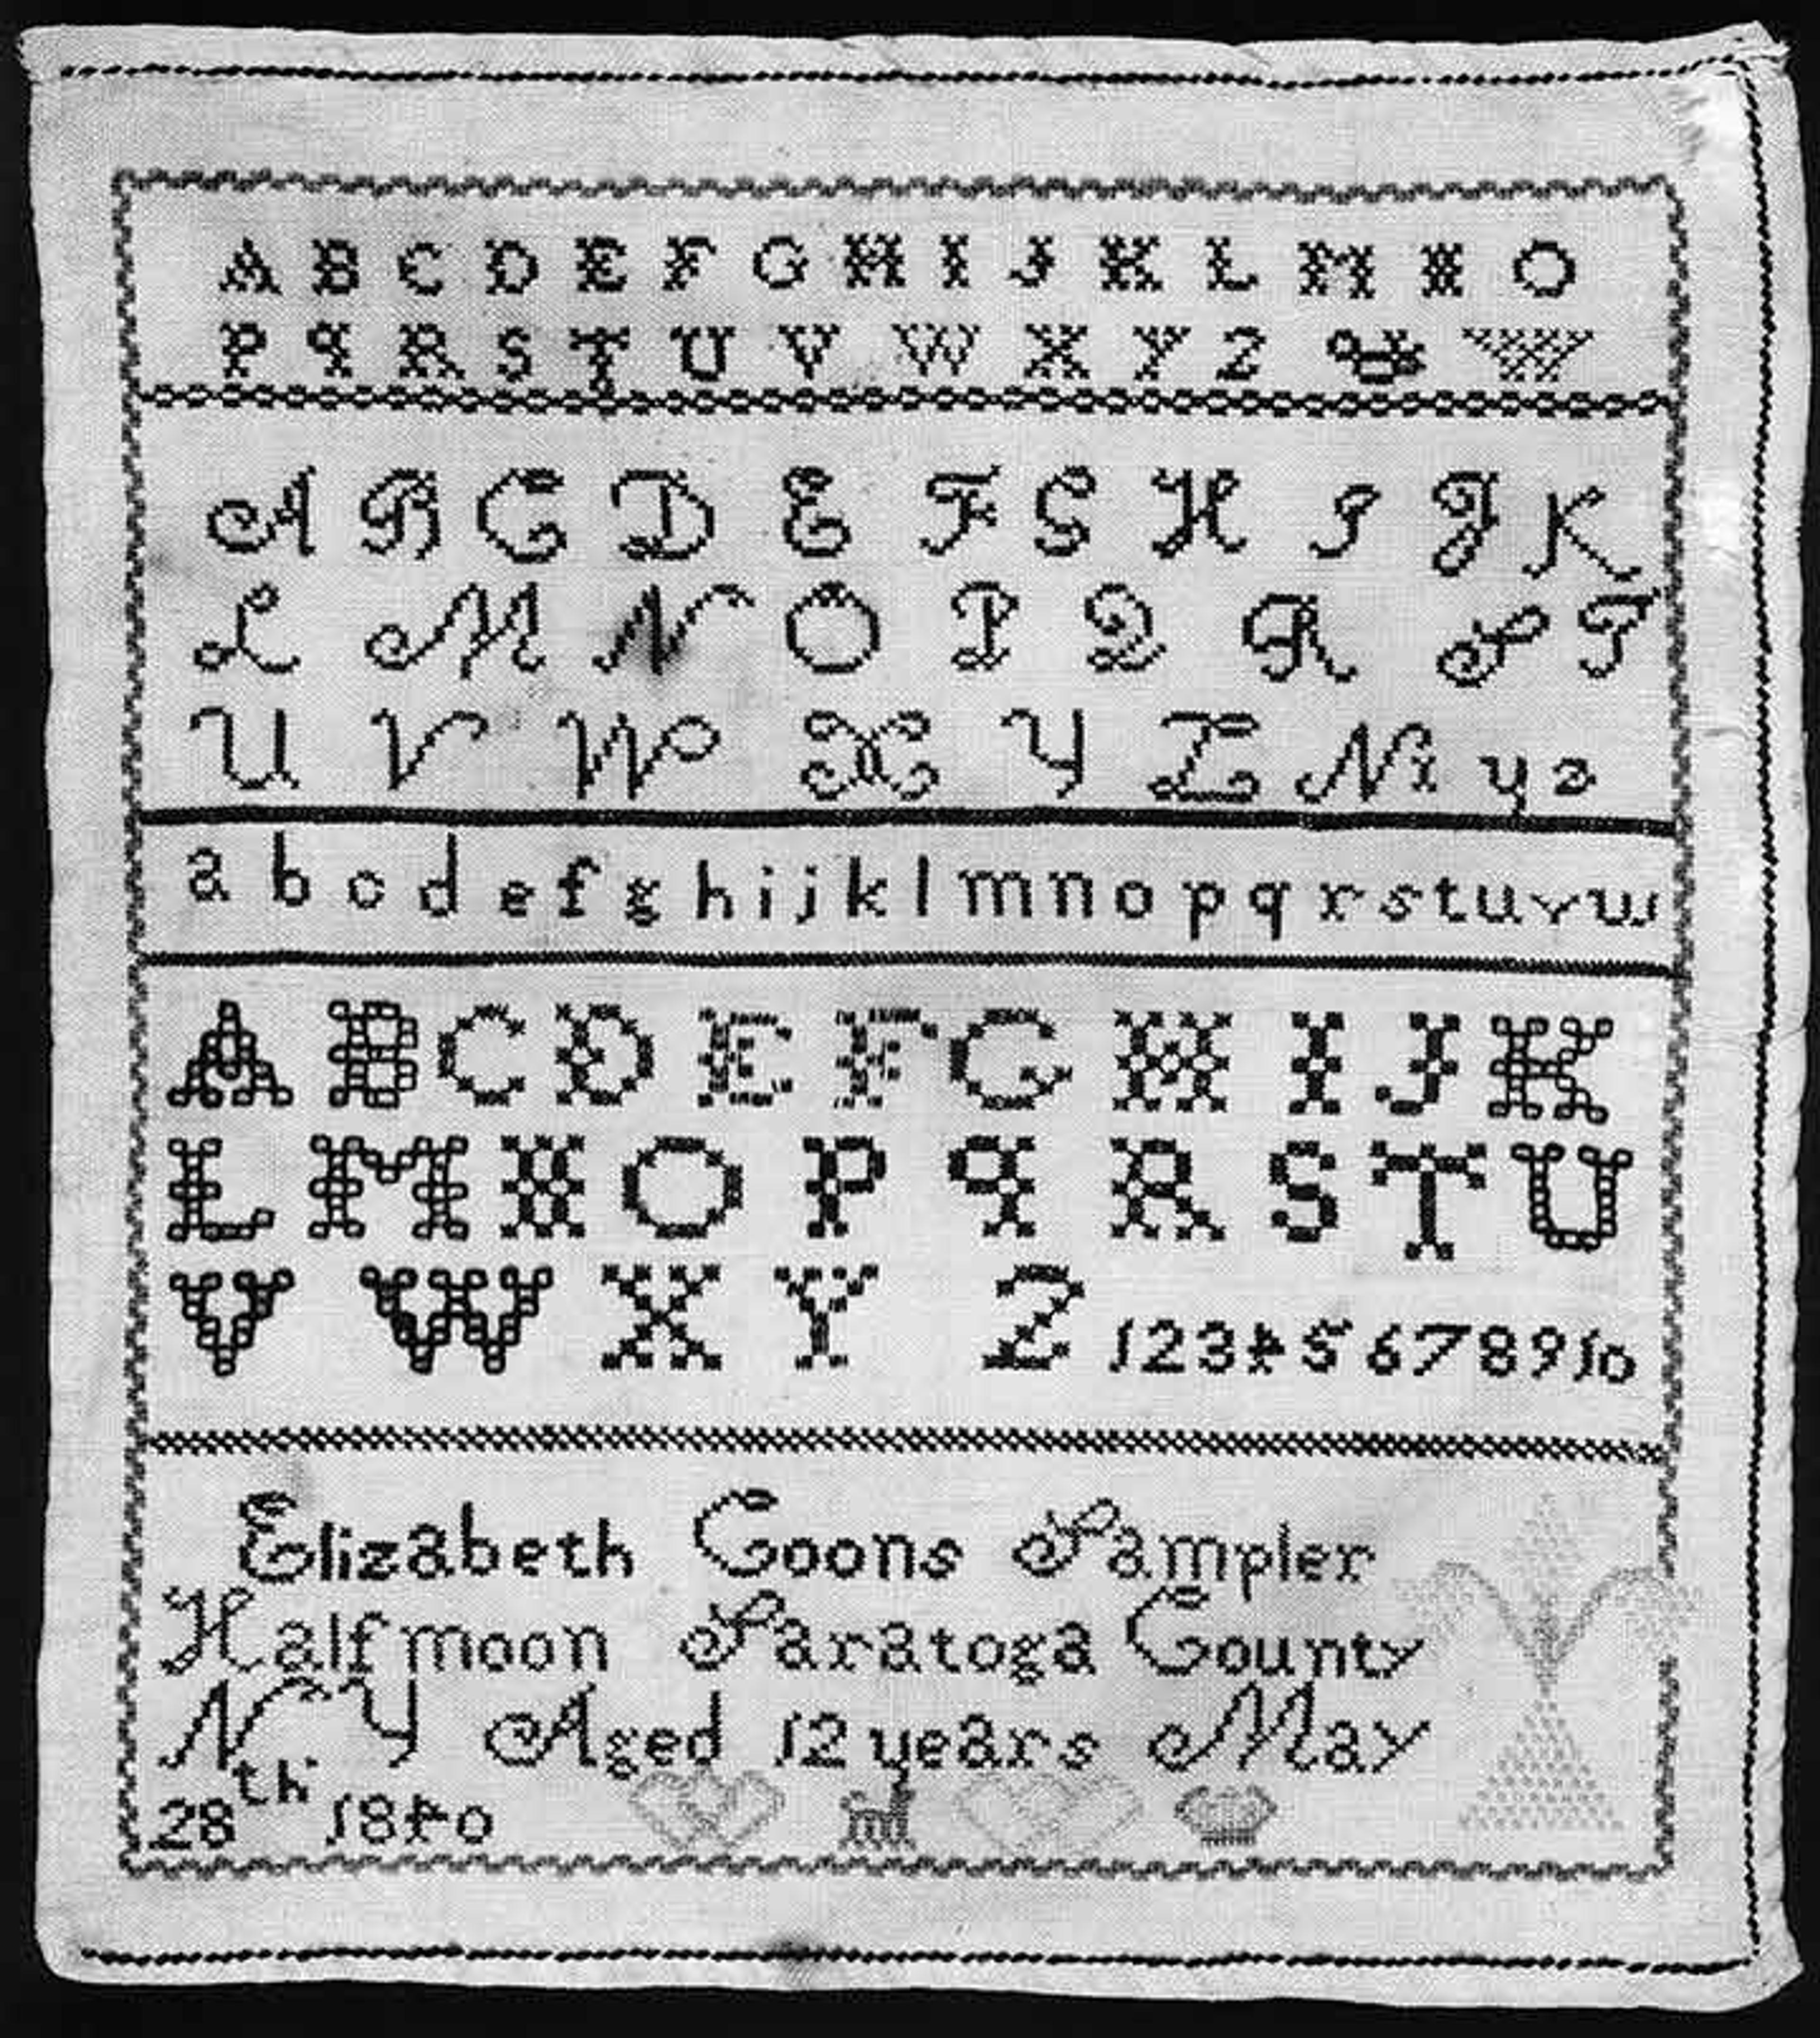 A B C D E F G H I J K L M N O
P q R S T U V W X Y Z &
A B C D E F G H I J K
L M N O P Q R S T
U V W X Y Z N x y z
a b c d e f g h i j k l m n o p q r s t u v w
A B C D E F G H I J K
L M N O P q R S T U
V W X Y Z 1 2 3 4 5 6 7 8 9 10
Elizabeth Coons Sampler
Halfmoon Saratoga County
N Y Aged 12 years May
28th 1840